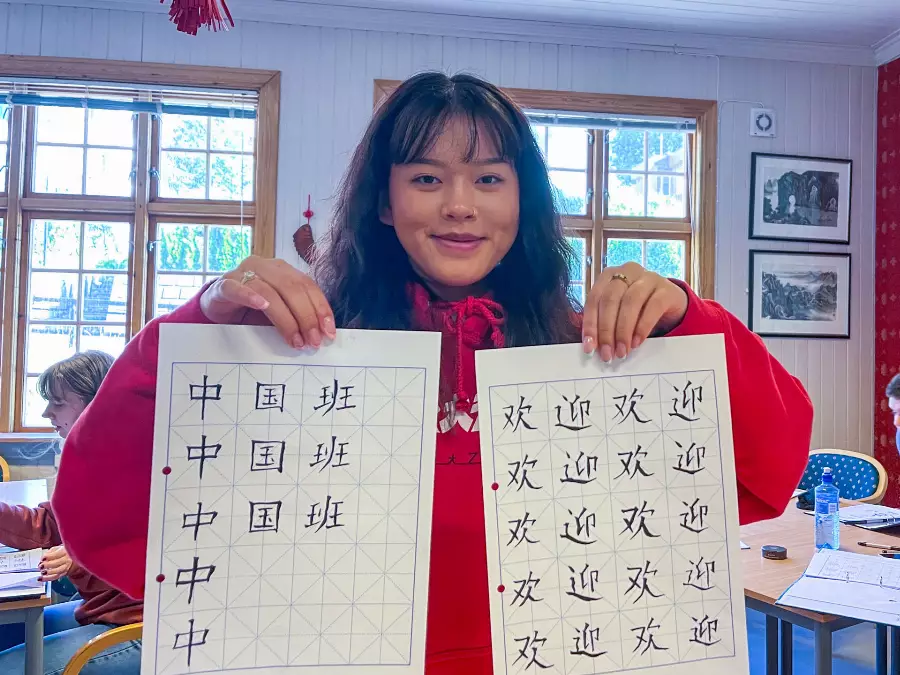 中国班
中国班
中国班
中
中
欢迎欢迎
欢迎欢迎
欢迎欢迎
欢迎欢迎
欢迎欢迎